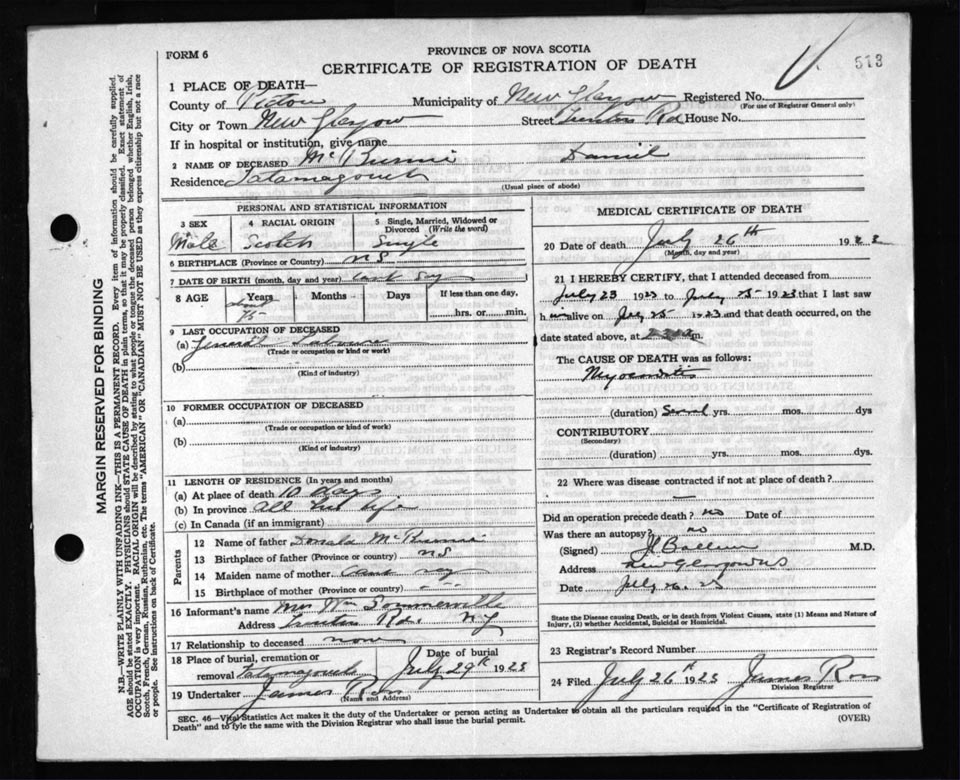 FORM 6
PROVINCE OF NOVA SCOTIA
CERTIFICATE OF REGISTRATION OF DEATH
513
1 PLACE OF DEATH—
County of Pictou Municipality of New Glasgow Registered No.
(For use of Registrar General only)
City or Town New Glasgow Street Rd House No.
If in hospital or institution, give name
2 NAME OF DECEASED Daniel
Residence Tatamagouch
(Usual place of abode)
PERSONAL AND STATISTICAL INFORMATION
3 SEX 4 RACIAL ORIGIN 5 Single, Married, Widowed or Divorced (Write the word)
Male Scotch Single
6 BIRTHPLACE (Province or Country) N S
7 DATE OF BIRTH (month, day and year) cant say
8 AGE Years Months Days If less than one day,
about 75 hrs. or min.
9 LAST OCCUPATION OF DECEASED
(a) General
(Trade or occupation or kind of work)
(b)
(Kind of industry)
10 FORMER OCCUPATION OF DECEASED
(a)
(Trade or occupation or kind of work)
(b)
(Kind of industry)
11 LENGTH OF RESIDENCE (In years and months)
(a) At place of death 10 days
(b) In province All his life
(c) In Canada (if an immigrant)
Parents
12 Name of father Donald
13 Birthplace of father (Province or country) N S
14 Maiden name of mother cant say
15 Birthplace of mother (Province or country)
16 Informant's name Mrs Wm Sommerville
Address Rd. N G
17 Relationship to deceased none
18 Place of burial, cremation or removal Tatamagouche Date of burial July 29th 1923
19 Undertaker James Ross
(Name and Address)
MEDICAL CERTIFICATE OF DEATH
20 Date of death July 26th 1923
(Month, day and year)
21 I HEREBY CERTIFY, that I attended deceased from
July 23 1923 to July 25 1923 that I last saw
him alive on July 25 1923 and that death occurred, on
date stated above, at m.
The CAUSE OF DEATH was as follows:
Myocarditis
(duration) Several yrs. mos. dys
CONTRIBUTORY
(Secondary)
(duration) yrs. mos. dys
22 Where was disease contracted if not at place of death?
—
Did an operation precede death? no Date of
Was there an autopsy? no
(Signed) M.D.
Address New Glasgow NS
Date July 26. 23
State the Disease causing Death, or in death from Violent Causes, state (1) Means and Nature of Injury, (2) whether Accidental, Suicidal or Homicidal.
23 Registrar's Record Number
24 Filed July 26th 1923 James Ross
Division Registrar
SEC. 46—Vital Statistics Act makes it the duty of the Undertaker or person acting as Undertaker to obtain all the particulars required in the "Certificate of Registration of
Death" and to fyle the same with the Division Registrar who shall issue the burial permit. (OVER)
MARGIN RESERVED FOR BINDING
N.B.—WRITE PLAINLY WITH UNFADING INK—THIS IS A PERMANENT RECORD. Every item of information should be carefully supplied.
AGE should be stated EXACTLY. PHYSICIANS should STATE CAUSE OF DEATH in plain terms, so that it may be properly classified. Exact statement of
OCCUPATION is very important. RACIAL ORIGIN will be described by stating to what people or tongue the deceased person belonged whether English, Irish,
Scotch, French, German, Russian, Ruthenian, etc. The terms "AMERICAN" OR "CANADIAN" MUST NOT BE USED as they express citizenship but not a race
or people. See instructions on back of Certificate.